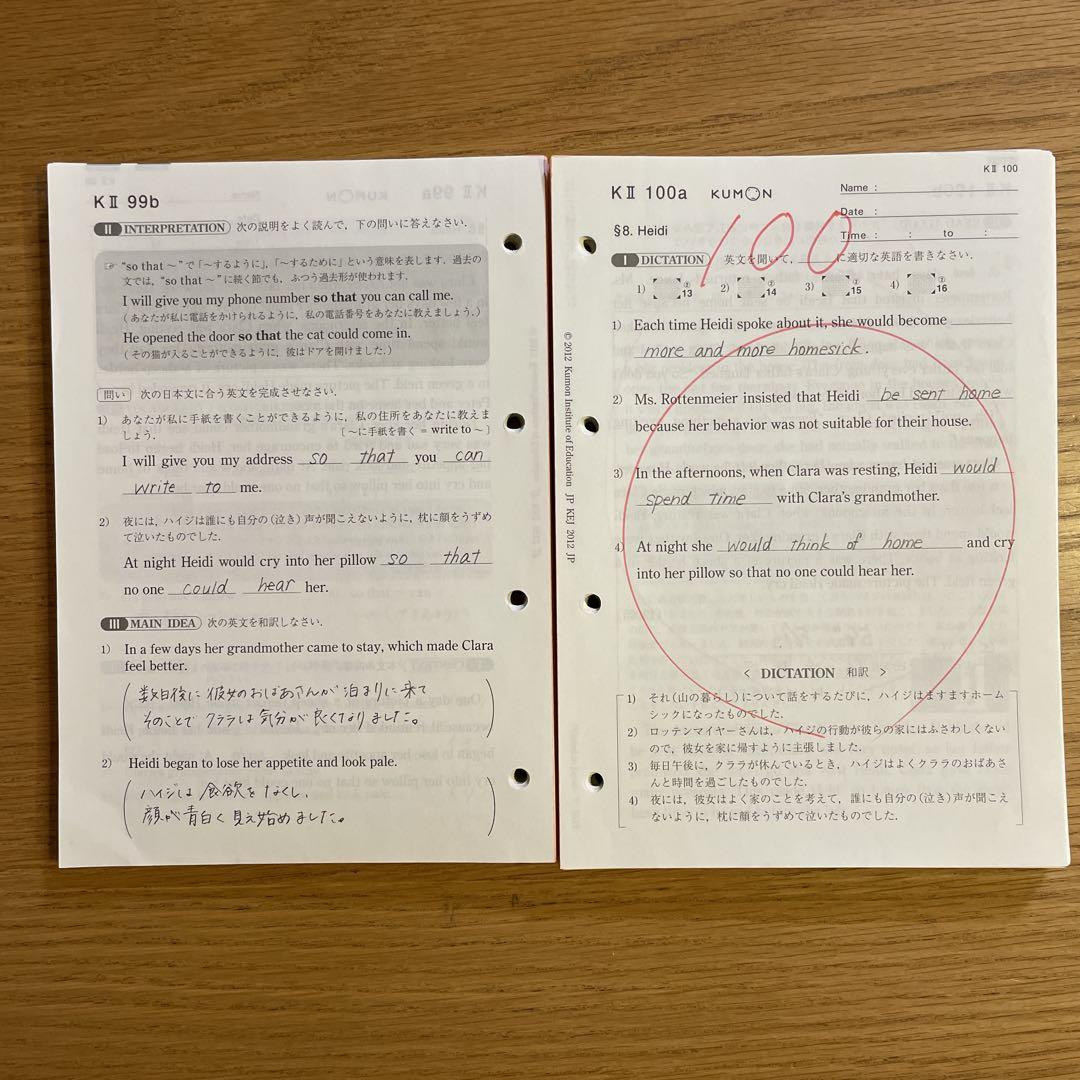 KⅡ 99b
Ⅱ INTERPRETATION 次の説明をよく読んで，下の問いに答えなさい．
☞ “so that ～”で「～するように」，「～するために」という意味を表します．過去の
文では，“so that ～”に続く節でも，ふつう過去形が使われます．
I will give you my phone number so that you can call me.
（あなたが私に電話をかけられるように，私の電話番号をあなたに教えましょう．）
He opened the door so that the cat could come in.
（その猫が入ることができるように，彼はドアを開けました．）
問い 次の日本文に合う英文を完成させなさい．
1） あなたが私に手紙を書くことができるように，私の住所をあなたに教えま
しょう． 〔～に手紙を書く＝write to ～〕
I will give you my address so that you can
write to me.
2） 夜には，ハイジは誰にも自分の（泣き）声が聞こえないように，枕に顔をうずめ
て泣いたものでした．
At night Heidi would cry into her pillow so that
no one could hear her.
Ⅲ MAIN IDEA 次の英文を和訳しなさい．
1） In a few days her grandmother came to stay, which made Clara
feel better.
数日後に彼女のおばあさんが泊まりに来て
そのことでクララは気分が良くなりました。
2） Heidi began to lose her appetite and look pale.
ハイジは食欲をなくし、
顔が青白く見え始めました。
KⅡ 100
KⅡ 100a KUMON
Name :
Date :
Time : : to :
100
§8. Heidi
Ⅰ DICTATION 英文を聞いて，＿＿＿に適切な英語を書きなさい．
1） ② 13 2） ② 14 3） ② 15 4） ② 16
1） Each time Heidi spoke about it, she would become
more and more homesick.
2） Ms. Rottenmeier insisted that Heidi be sent home
because her behavior was not suitable for their house.
3） In the afternoons, when Clara was resting, Heidi would
spend time with Clara's grandmother.
4） At night she would think of home and cry
into her pillow so that no one could hear her.
＜ DICTATION 和訳 ＞
1） それ（山の暮らし）について話をするたびに，ハイジはますますホーム
シックになったものでした．
2） ロッテンマイヤーさんは，ハイジの行動が彼らの家にはふさわしくない
ので，彼女を家に帰すように主張しました．
3） 毎日午後に，クララが休んでいるとき，ハイジはよくクララのおばあさ
んと時間を過ごしたものでした．
4） 夜には，彼女はよく家のことを考えて，誰にも自分の（泣き）声が聞こえ
ないように，枕に顔をうずめて泣いたものでした．
© 2012 Kumon Institute of Education JP KEJ 2012 JP